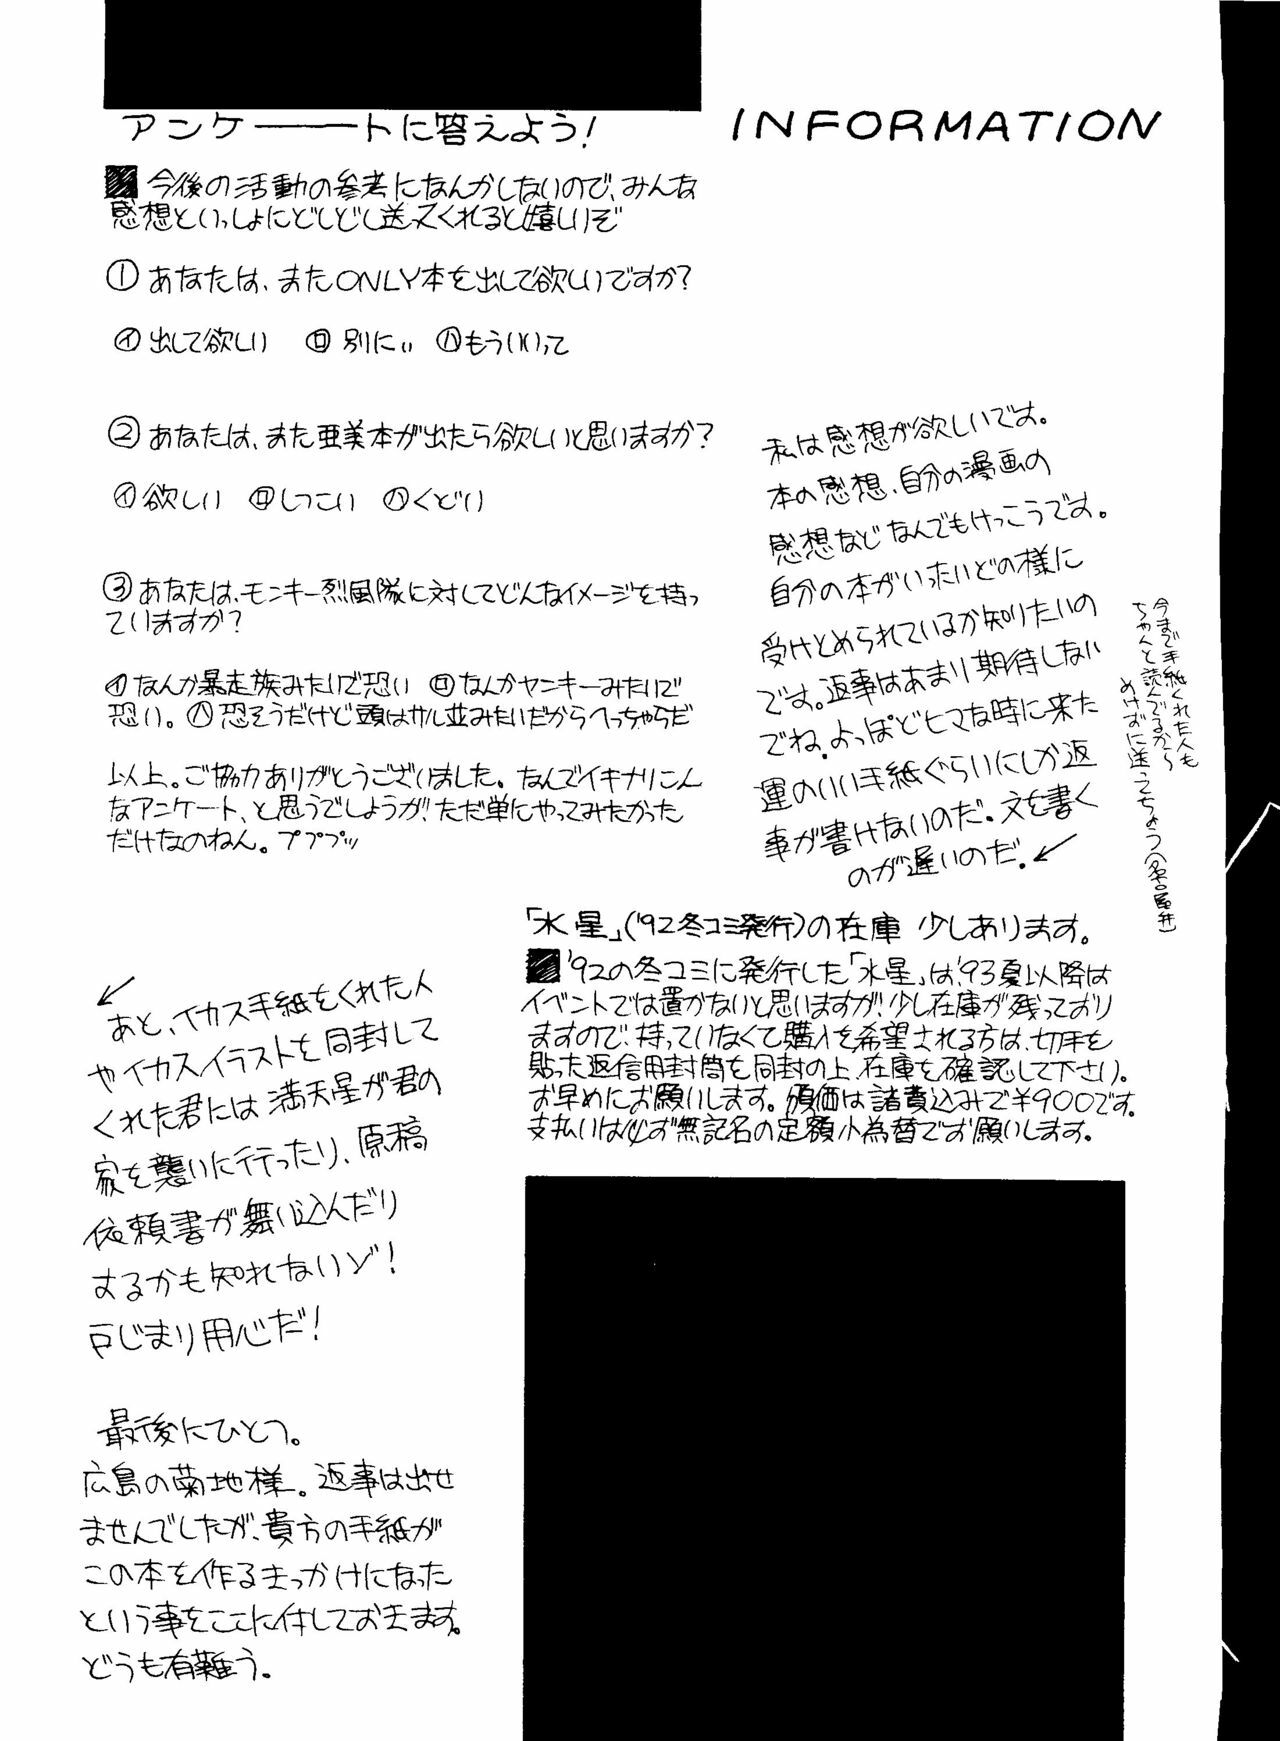 アンケートに答えよう!
INFORMATION
今後の活動の参考になんかしないので、みんな
感想といっしょにどしどし送ってくれると嬉しいぞ
①あなたは、またONLY本を出して欲しいですか?
㋑出して欲しい ㋺別にぃ ㋩もういいって
②あなたは、また亜美本が出たら欲しいと思いますか?
㋑欲しい ㋺しつこい ㋩くどい
③あなたは、モンキー烈風隊に対してどんなイメージを持っ
ていますか?
㋑なんか暴走族みたいで恐い ㋺なんかヤンキーみたいで
恐い。㋩恐そうだけど頭はサル並みたいだからへっちゃらだ
以上。ご協力ありがとうございました。なんでイキナリこん
なアンケート、と思うでしょうが!ただ単にやってみたかった
だけなのねん。プププッ
私は感想が欲しいです。
本の感想、自分の漫画の
感想などなんでもけっこうです。
自分の本がいったいどの様に
受けとめられているか知りたいの
です。返事はあまり期待しない
でね。よっぽどヒマな時に来た
運のいい手紙ぐらいにしか返
事が書けないのだ。文を書く
のが遅いのだ。↙
今まで手紙くれた人も
ちゃんと読んでるから
めげずに送ってちょう(名古屋弁)
↙
あと、イカス手紙をくれた人
やイカスイラストを同封して
くれた君には満天星が君の
家を襲いに行ったり、原稿
依頼書が舞い込んだり
するかも知れないゾ!
戸じまり用心だ!
最後にひとつ。
広島の菊地様。返事は出せ
ませんでしたが、貴方の手紙が
この本を作るきっかけになった
という事をここに付しておきます。
どうも有難う。
「水星」('92冬コミ発行)の在庫 少しあります。
'92の冬コミに発行した「水星」は'93夏以降は
イベントでは置かないと思いますが!少し在庫が残っており
ますので、持っていなくて購入を希望される方は、切手を
貼った返信用封筒を同封の上、在庫を確認して下さい。
お早めにお願いします。頒価は諸費込みで¥900です。
支払いは必ず無記名の定額小為替でお願いします。